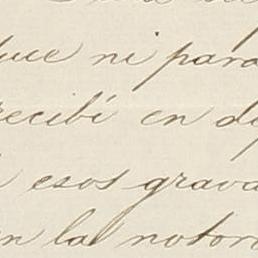 uce ni para
recibí en de
esos grava
en la notor